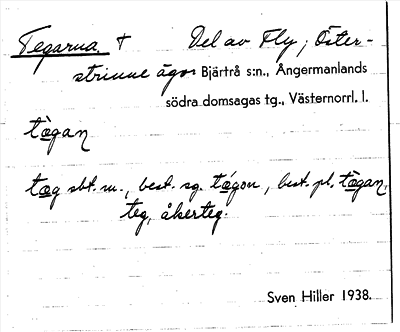 Tegarna † Del av Fly, Öster-
strinne ägor Bjärtrå s:n., Ångermanlands
södra domsagas tg., Västernorrl. l.
tæ̀gan
tæg sbt. m., best. sg. tæ̀gon, best. pl. tæ̀gan,
teg, åkerteg.
Sven Hiller 1938.